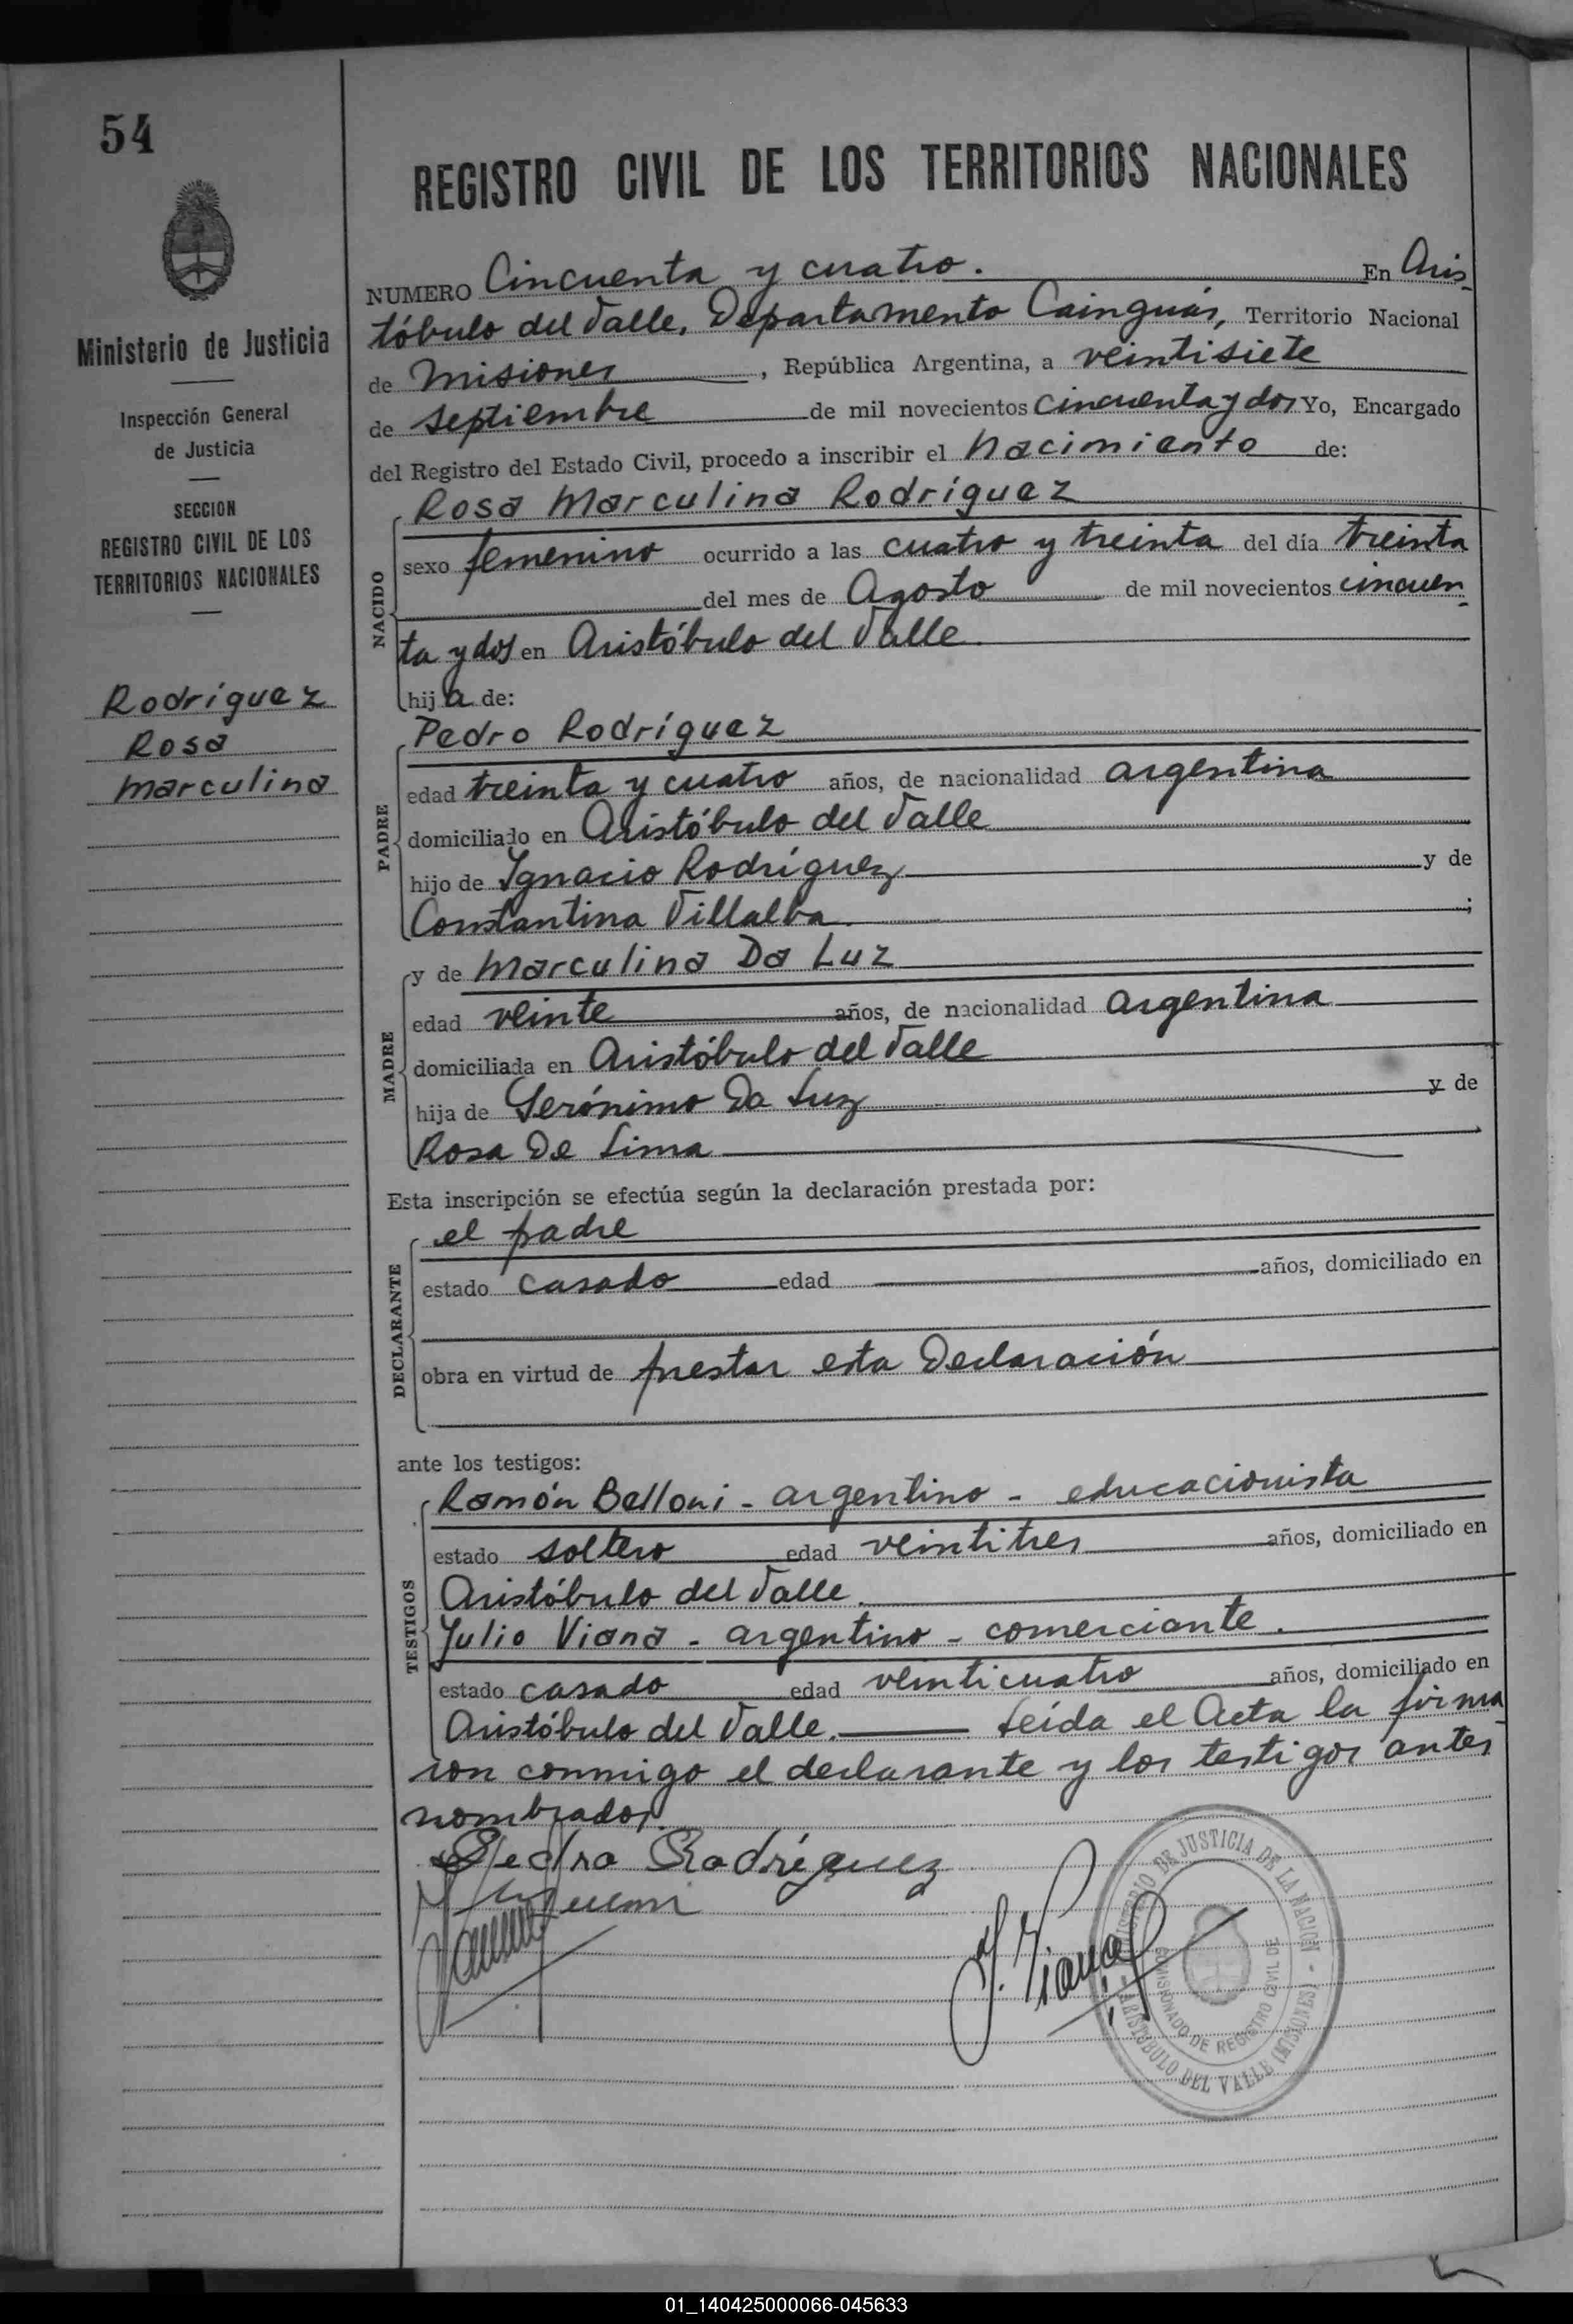 54
Ministerio de Justicia
Inspección General
de Justicia
SECCION
REGISTRO CIVIL DE LOS
TERRITORIOS NACIONALES
Rodríguez
Rosa
Marculina
REGISTRO CIVIL DE LOS TERRITORIOS NACIONALES
NUMERO Cincuenta y cuatro. En Aris
tóbulo del Valle, Departamento Cainguás, Territorio Nacional
de Misiones, República Argentina, a veintisiete
de septiembre de mil novecientos cincuenta y dos Yo, Encargado
del Registro del Estado Civil, procedo a inscribir el Nacimiento de:
NACIDO
Rosa Marculina Rodríguez
sexo femenino ocurrido a las cuatro y treinta del día treinta
del mes de Agosto de mil novecientos cincuen
ta y dos en Aristóbulo del Valle.
hija de:
PADRE
Pedro Rodríguez
edad treinta y cuatro años, de nacionalidad argentina
domiciliado en Aristóbulo del Valle
hijo de Ignacio Rodríguez y de
Constantina Villalba. ;
MADRE
y de Marculina Da Luz
edad veinte años, de nacionalidad argentina
domiciliada en Aristóbulo del Valle
hija de Gerónimo Da Luz y de
Rosa De Lima
Esta inscripción se efectúa según la declaración prestada por:
DECLARANTE
el padre
estado casado edad años, domiciliado en
obra en virtud de prestar esta Declaración
ante los testigos:
TESTIGOS
Ramón Belloni - argentino - educacionista
estado soltero edad veintitres años, domiciliado en
Aristóbulo del Valle.
Julio Viana - argentino - comerciante.
estado casado edad veinticuatro años, domiciliado en
Aristóbulo del Valle. Leída el Acta la firma
ron conmigo el declarante y los testigos antes
nombrados.
Pedro Rodríguez
J. Viana
MINISTERIO DE JUSTICIA DE LA NACION - ARISTOBULO DEL VALLE (MISIONES) -
COMISIONADO DE REGISTRO CIVIL DE
01_140425000066-045633